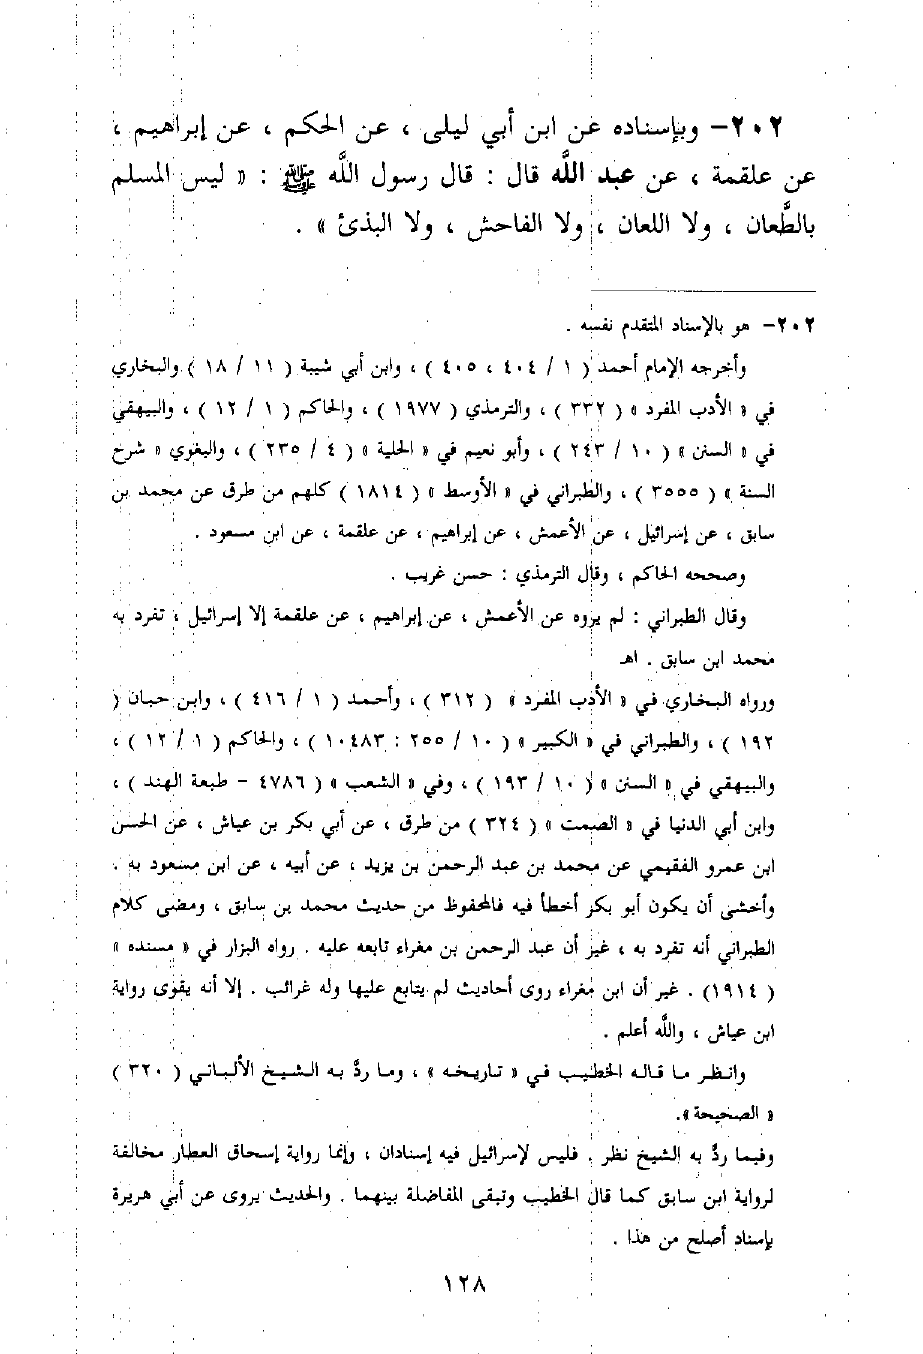 ٢٠٢- وبإسناده عن ابن أبي ليلى ، عن الحكم ، عن إبراهيم ،
عن علقمة ، عن عبد اللَّه قال : قال رسول اللَّه ﷺ : « ليس المسلم
بالطَّعان ، ولا اللعان ، ولا الفاحش ، ولا البذئ » .
٢٠٢- هو بالإسناد المتقدم نفسه .
وأخرجه الإمام أحمد ( ١ / ٤٠٤ ، ٤٠٥ ) ، وابن أبي شيبة ( ١١ / ١٨ ) والبخاري
في « الأدب المفرد » ( ٣٣٢ ) ، والترمذي ( ١٩٧٧ ) ، والحاكم ( ١ / ١٢ ) ، والبيهقي
في « السنن » ( ١٠ / ٢٤٣ ) ، وأبو نعيم في « الحلية » ( ٤ / ٢٣٥ ) ، والبغوي « شرح
السنة » ( ٣٥٥٥ ) ، والطبراني في « الأوسط » ( ١٨١٤ ) كلهم من طرق عن محمد بن
سابق ، عن إسرائيل ، عن الأعمش ، عن إبراهيم ، عن علقمة ، عن ابن مسعود .
وصححه الحاكم ، وقال الترمذي : حسن غريب .
وقال الطبراني : لم يروه عن الأعمش ، عن إبراهيم ، عن علقمة إلا إسرائيل ، تفرد به
محمد ابن سابق . اهـ
ورواه البخاري في « الأدب المفرد » ( ٣١٢ ) ، وأحمد ( ١ / ٤١٦ ) ، وابن حبان (
١٩٢ ) ، والطبراني في « الكبير » ( ١٠ / ٢٥٥ : ١٠٤٨٣ ) ، والحاكم ( ١ / ١٢ ) ،
والبيهقي في « السنن » ( ١٠ / ١٩٣ ) ، وفي « الشعب » ( ٤٧٨٦ - طبعة الهند ) ،
وابن أبي الدنيا في « الصمت » ( ٣٢٤ ) من طرق ، عن أبي بكر بن عياش ، عن الحسن
ابن عمرو الفقيمي عن محمد بن عبد الرحمن بن يزيد ، عن أبيه ، عن ابن مسعود به .
وأخشى أن يكون أبو بكر أخطأ فيه فالمحفوظ من حديث محمد بن سابق ، ومضى كلام
الطبراني أنه تفرد به ، غير أن عبد الرحمن بن مغراء تابعه عليه . رواه البزار في « مسنده »
( ١٩١٤) . غير أن ابن مغراء روى أحاديث لم يتابع عليها وله غرائب . إلا أنه يقوى رواية
ابن عياش ، واللَّه أعلم .
وانظر ما قاله الخطيب في « تاريخه » ، وما ردَّ به الشيخ الألباني ( ٣٢٠ )
« الصحيحة ».
وفيما ردَّ به الشيخ نظر . فليس لإسرائيل فيه إسنادان ، وإنما رواية إسحاق العطار مخالفة
لرواية ابن سابق كما قال الخطيب وتبقى المفاضلة بينهما . والحديث يروى عن أبي هريرة
بإسناد أصلح من هذا .
١٢٨